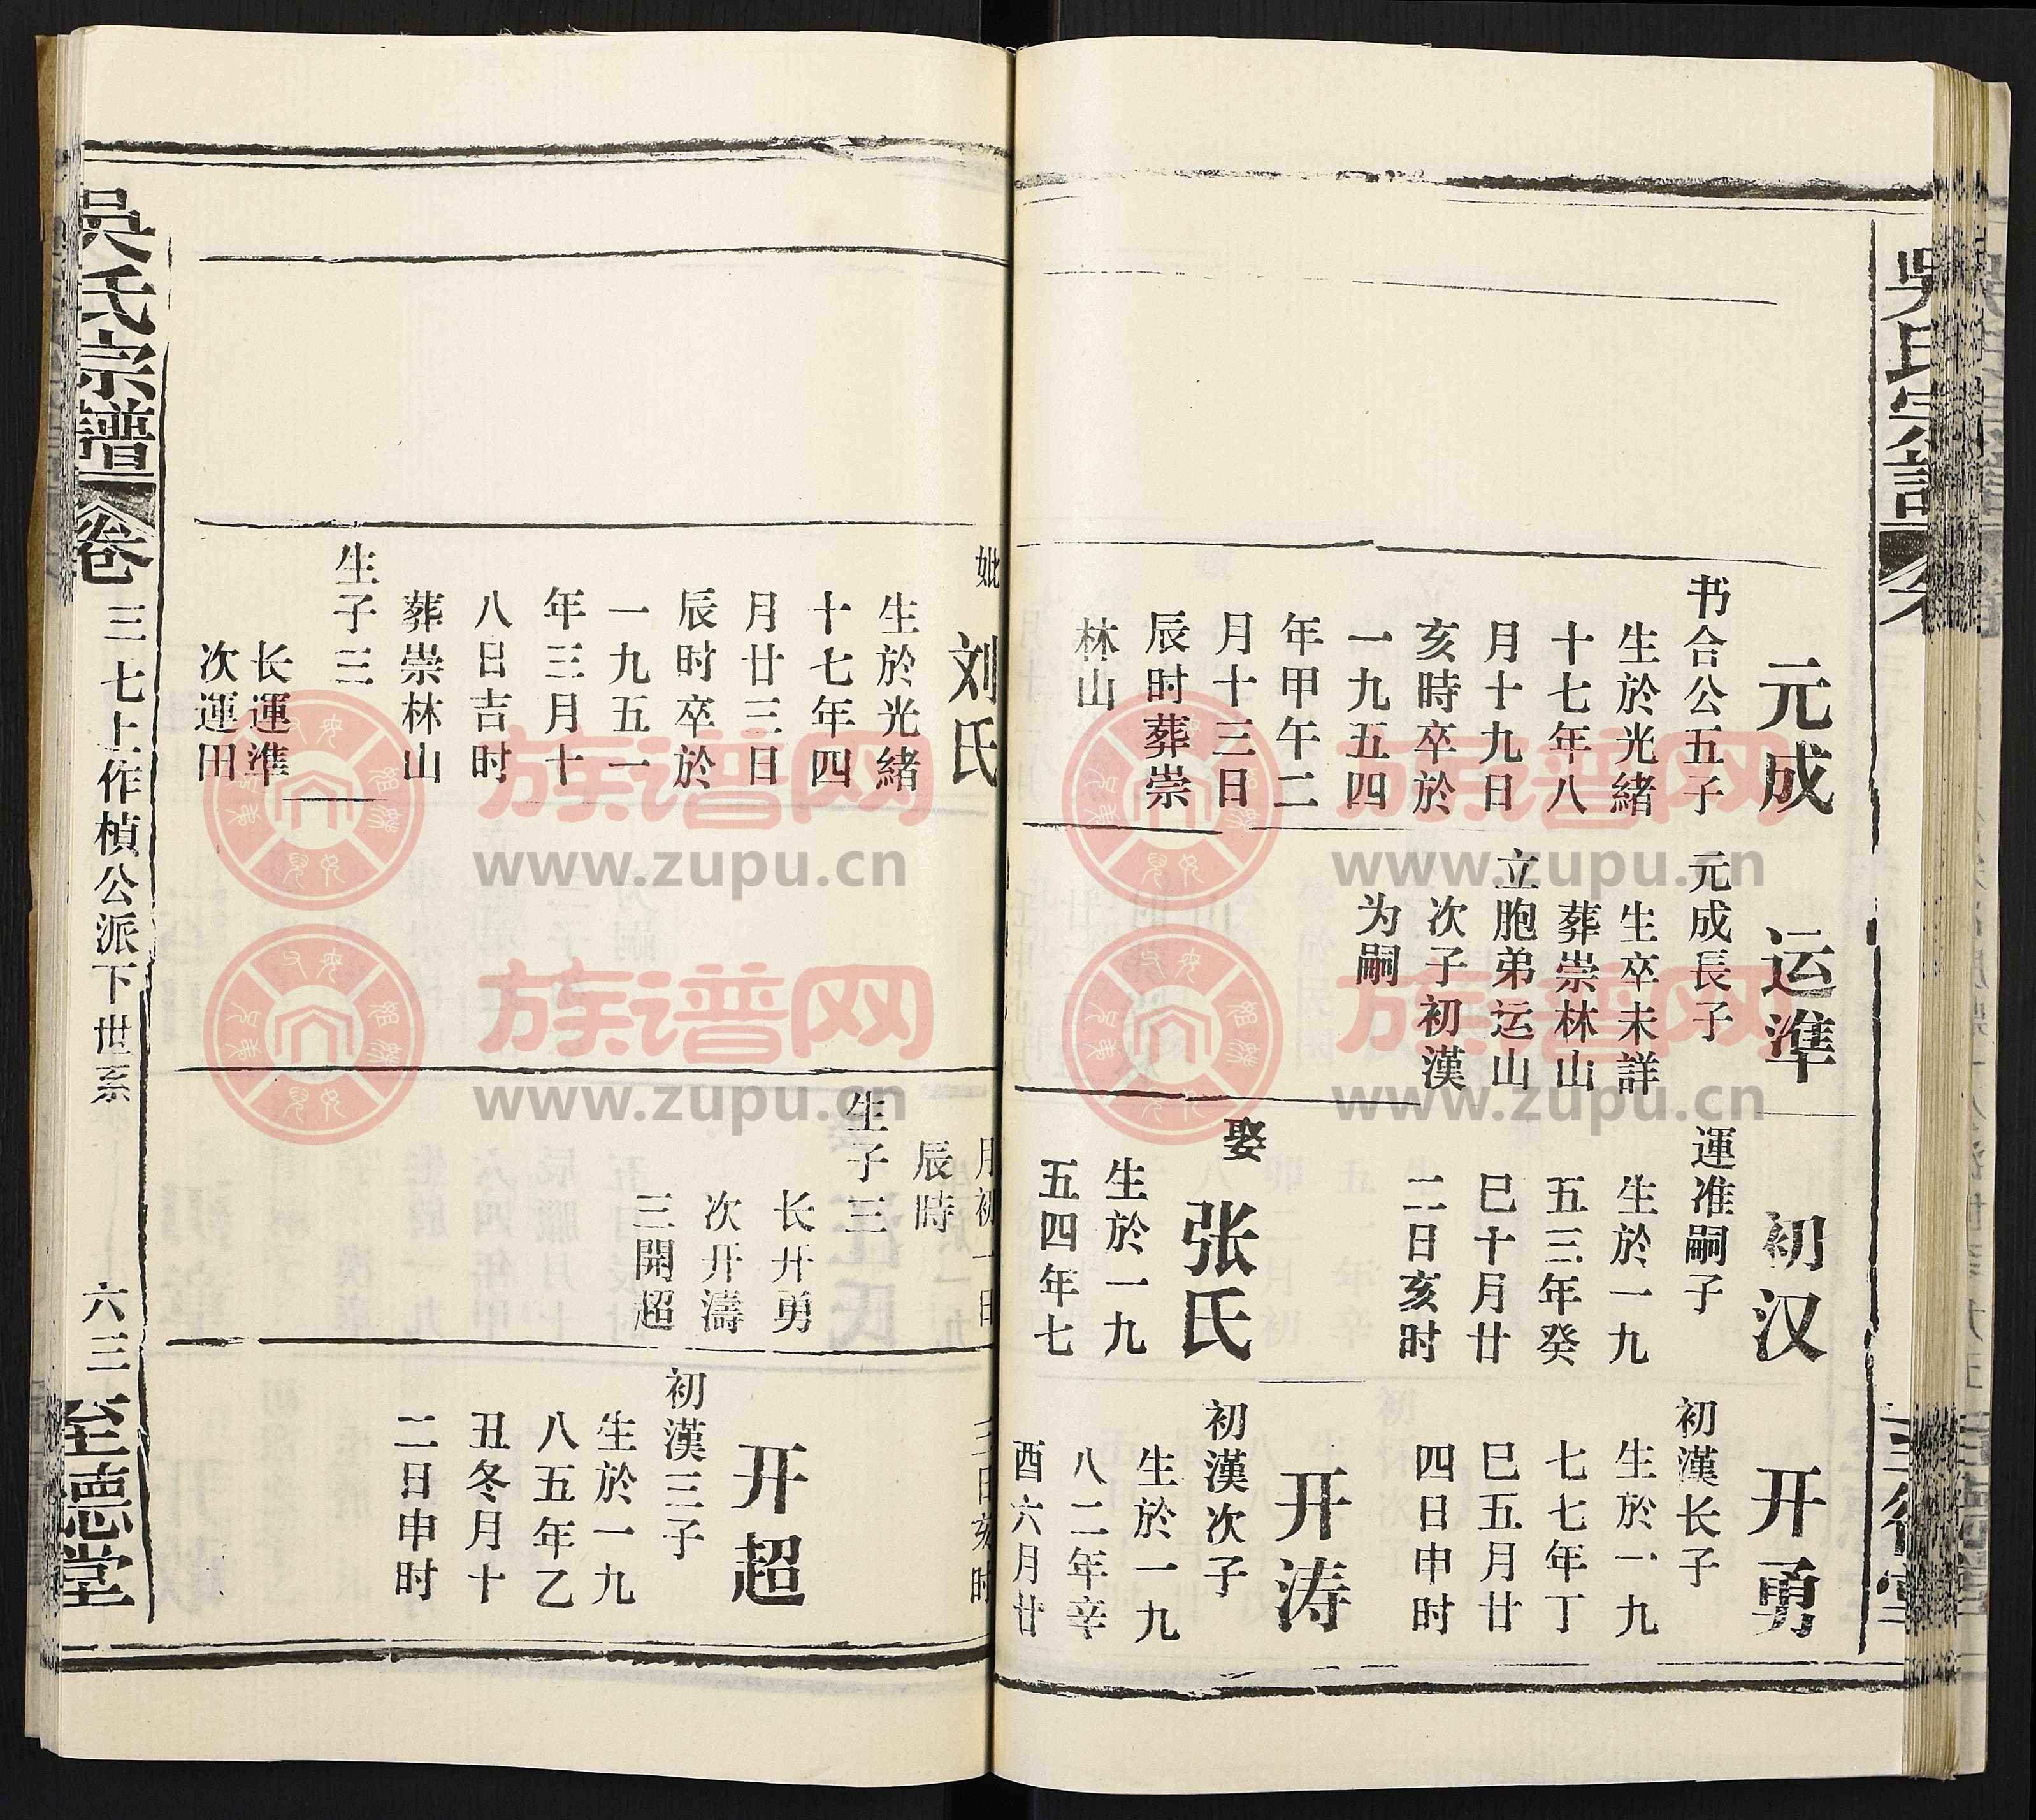 元成
书合公五子
生於光緒
十七年八
月十九日
亥時卒於
一九五四
年甲午二
月十三日
辰时葬崇
林山
妣
刘氏
生於光緒
十七年四
月廿三日
辰时卒於
一九五一
年三月十
八日吉时
葬崇林山
生子三
长運準
次運田
运準
元成長子
生卒未詳
葬崇林山
立胞弟运山
次子初漢
为嗣
初汉
運准嗣子
生於一九
五三年癸
巳十月廿
二日亥时
娶
张氏
生於一九
五四年七
月初一日
辰時
生子三
长开勇
次开濤
三開超
开勇
初漢长子
生於一九
七七年丁
巳五月廿
四日申时
开涛
初漢次子
生於一九
八二年辛
酉六月廿
三日亥时
开超
初漢三子
生於一九
八五年乙
丑冬月十
二日申时
吳氏宗譜
卷
三七上作楨公派下世系
六三
至德堂
族谱网
www.zupu.cn
族谱网
www.zupu.cn
族谱网
www.zupu.cn
族谱网
www.zupu.cn